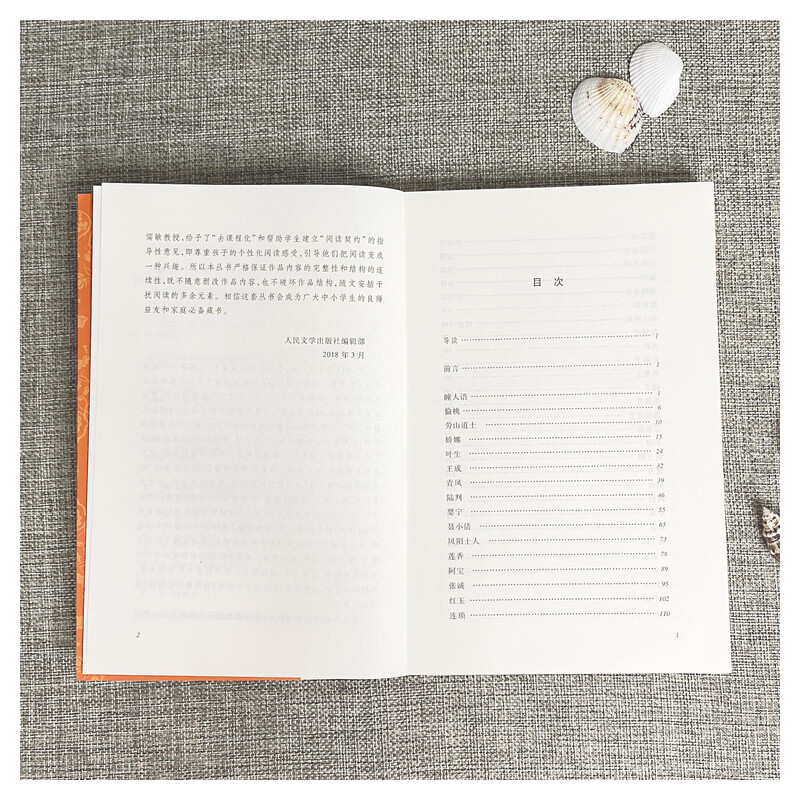 儒敏教授,给予了“去课程化”和帮助学生建立“阅读契约”的指
导性意见,即尊重孩子的个性化阅读感受,引导他们把阅读变成
一种兴趣。所以本丛书严格保证作品内容的完整性和结构的连
续性,既不随意删改作品内容,也不破坏作品结构,随文安插干
扰阅读的多余元素。相信这套丛书会成为广大中小学生的良师
益友和家庭必备藏书。
人民文学出版社编辑部
2018 年 3 月
2
目 次
导读 1
前言 1
瞳人语 1
偷桃 6
劳山道士 10
娇娜 15
叶生 24
王成 32
青凤 39
陆判 46
婴宁 55
聂小倩 65
凤阳士人 73
莲香 78
阿宝 89
张诚 95
红玉 102
连琐 110
1